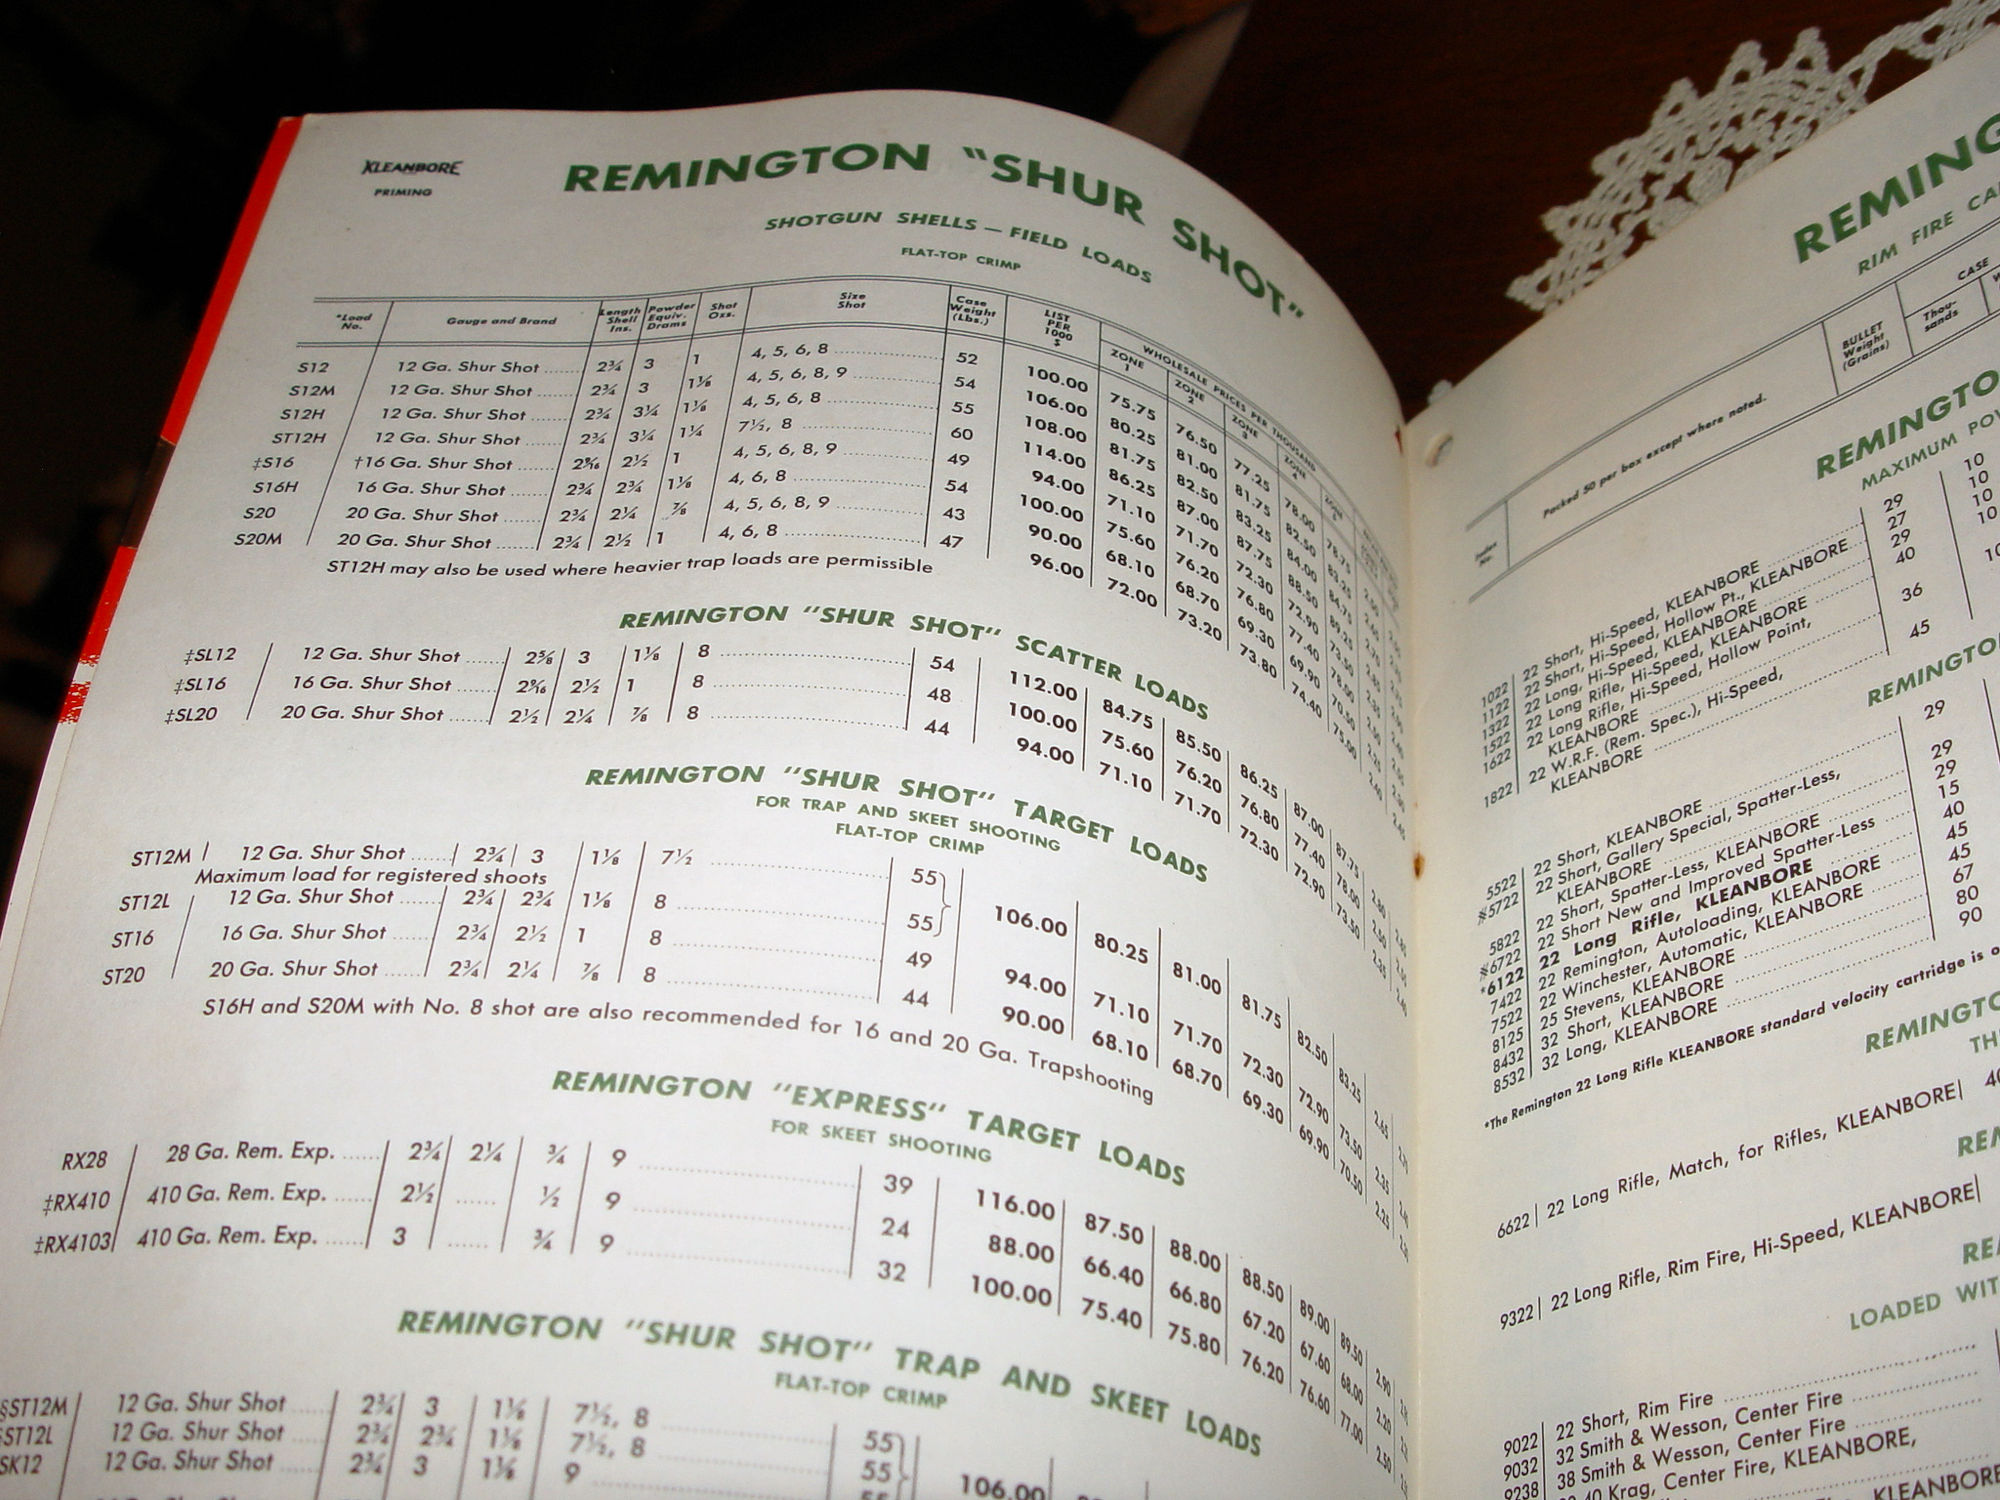 KLEANBORE
PRIMING
REMINGTON "SHUR SHOT"
SHOTGUN SHELLS — FIELD LOADS
FLAT-TOP CRIMP
*Load No. Gauge and Brand Length Shell Ins. Powder Equiv. Drams Shot Ozs. Size Shot Case Weight (Lbs.) LIST PER 1000 $ WHOLESALE PRICES PER THOUSAND
ZONE 1 ZONE 2 ZONE 3 ZONE 4 ZONE
S12 12 Ga. Shur Shot 2¾ 3 1 4, 5, 6, 8 52 100.00 75.75 76.50 77.25 78.00 78.75
S12M 12 Ga. Shur Shot 2¾ 3 1⅛ 4, 5, 6, 8, 9 54 106.00 80.25 81.00 81.75 82.50 83.25
S12H 12 Ga. Shur Shot 2¾ 3¼ 1⅛ 4, 5, 6, 8 55 108.00 81.75 82.50 83.25 84.00 84.75
ST12H 12 Ga. Shur Shot 2¾ 3¼ 1¼ 7½, 8 60 114.00 86.25 87.00 87.75 88.50 89.25
‡S16 †16 Ga. Shur Shot 2⁹⁄₁₆ 2½ 1 4, 5, 6, 8, 9 49 94.00 71.10 71.70 72.30 72.90 73.50
S16H 16 Ga. Shur Shot 2¾ 2¾ 1⅛ 4, 6, 8 54 100.00 75.60 76.20 76.80 77.40 78.00
S20 20 Ga. Shur Shot 2¾ 2¼ ⅞ 4, 5, 6, 8, 9 43 90.00 68.10 68.70 69.30 69.90 70.50
S20M 20 Ga. Shur Shot 2¾ 2½ 1 4, 6, 8 47 96.00 72.00 73.20 73.80 74.40 75.00
ST12H may also be used where heavier trap loads are permissible
REMINGTON "SHUR SHOT" SCATTER LOADS
‡SL12 12 Ga. Shur Shot 2⅝ 3 1⅛ 8 54 112.00 84.75 85.50 86.25 87.00 87.75
‡SL16 16 Ga. Shur Shot 2⁹⁄₁₆ 2½ 1 8 48 100.00 75.60 76.20 76.80 77.40 78.00
‡SL20 20 Ga. Shur Shot 2½ 2¼ ⅞ 8 44 94.00 71.10 71.70 72.30 72.90 73.50
REMINGTON "SHUR SHOT" TARGET LOADS
FOR TRAP AND SKEET SHOOTING
FLAT-TOP CRIMP
ST12M 12 Ga. Shur Shot 2¾ 3 1⅛ 7½ 55
Maximum load for registered shoots
106.00 80.25 81.00 81.75 82.50 83.25 2.65
ST12L 12 Ga. Shur Shot 2¾ 2¾ 1⅛ 8 55
ST16 16 Ga. Shur Shot 2¾ 2½ 1 8 49 94.00 71.10 71.70 72.30 72.90 73.50 2.35
ST20 20 Ga. Shur Shot 2¾ 2¼ ⅞ 8 44 90.00 68.10 68.70 69.30 69.90 70.50 2.25
S16H and S20M with No. 8 shot are also recommended for 16 and 20 Ga. Trapshooting
REMINGTON "EXPRESS" TARGET LOADS
FOR SKEET SHOOTING
RX28 28 Ga. Rem. Exp. 2¾ 2¼ ¾ 9 39 116.00 87.50 88.00 88.50 89.00 89.50 2.90
‡RX410 410 Ga. Rem. Exp. 2½ ½ 9 24 88.00 66.40 66.80 67.20 67.60 68.00 2.20
‡RX4103 410 Ga. Rem. Exp. 3 ¾ 9 32 100.00 75.40 75.80 76.20 76.60 77.00 2.50
REMINGTON "SHUR SHOT" TRAP AND SKEET LOADS
FLAT-TOP CRIMP
§ST12M 12 Ga. Shur Shot 2¾ 3 1⅛ 7½, 8 55
§ST12L 12 Ga. Shur Shot 2¾ 2¾ 1⅛ 7½, 8 55
SK12 12 Ga. Shur Shot 2¾ 3 1⅛ 9 55
106.00
REMING
RIM FIRE CA
Packed 50 per box except where noted.
BULLET Weight (Grains)
CASE
Thou-sands
REMINGTO
MAXIMUM POW
1022 22 Short, Hi-Speed, KLEANBORE 29 10
1122 22 Short, Hi-Speed, Hollow Pt., KLEANBORE 27 10
1322 22 Long, Hi-Speed, KLEANBORE 29 10
1522 22 Long Rifle, Hi-Speed, KLEANBORE 40 10
1622 22 Long Rifle, Hi-Speed, Hollow Point,
KLEANBORE 36
1822 22 W.R.F. (Rem. Spec.), Hi-Speed,
KLEANBORE 45
REMINGTO
5522 22 Short, KLEANBORE 29
#5722 22 Short, Gallery Special, Spatter-Less,
KLEANBORE 29
5822 22 Short, Spatter-Less, KLEANBORE 29
#6722 22 Short New and Improved Spatter-Less 15
*6122 22 Long Rifle, KLEANBORE 40
7422 22 Remington, Autoloading, KLEANBORE 45
7522 22 Winchester, Automatic, KLEANBORE 45
8125 25 Stevens, KLEANBORE 67
8432 32 Short, KLEANBORE 80
8532 32 Long, KLEANBORE 90
*The Remington 22 Long Rifle KLEANBORE standard velocity cartridge is o
REMINGTO
TH
6622 22 Long Rifle, Match, for Rifles, KLEANBORE 40
REM
9322 22 Long Rifle, Rim Fire, Hi-Speed, KLEANBORE
REM
LOADED WIT
9022 22 Short, Rim Fire
9032 32 Smith & Wesson, Center Fire
9238 38 Smith & Wesson, Center Fire
40 Krag, Center Fire, KLEANBORE,
KLEANBORE